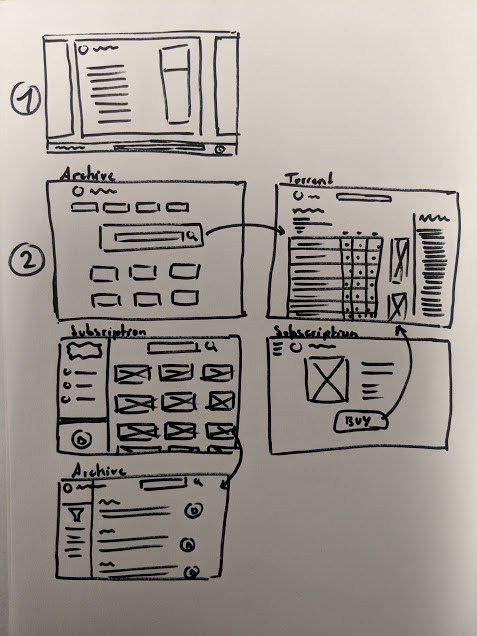 1
Archive
Torrent
2
Subscription
Subscription
BUY
Archive